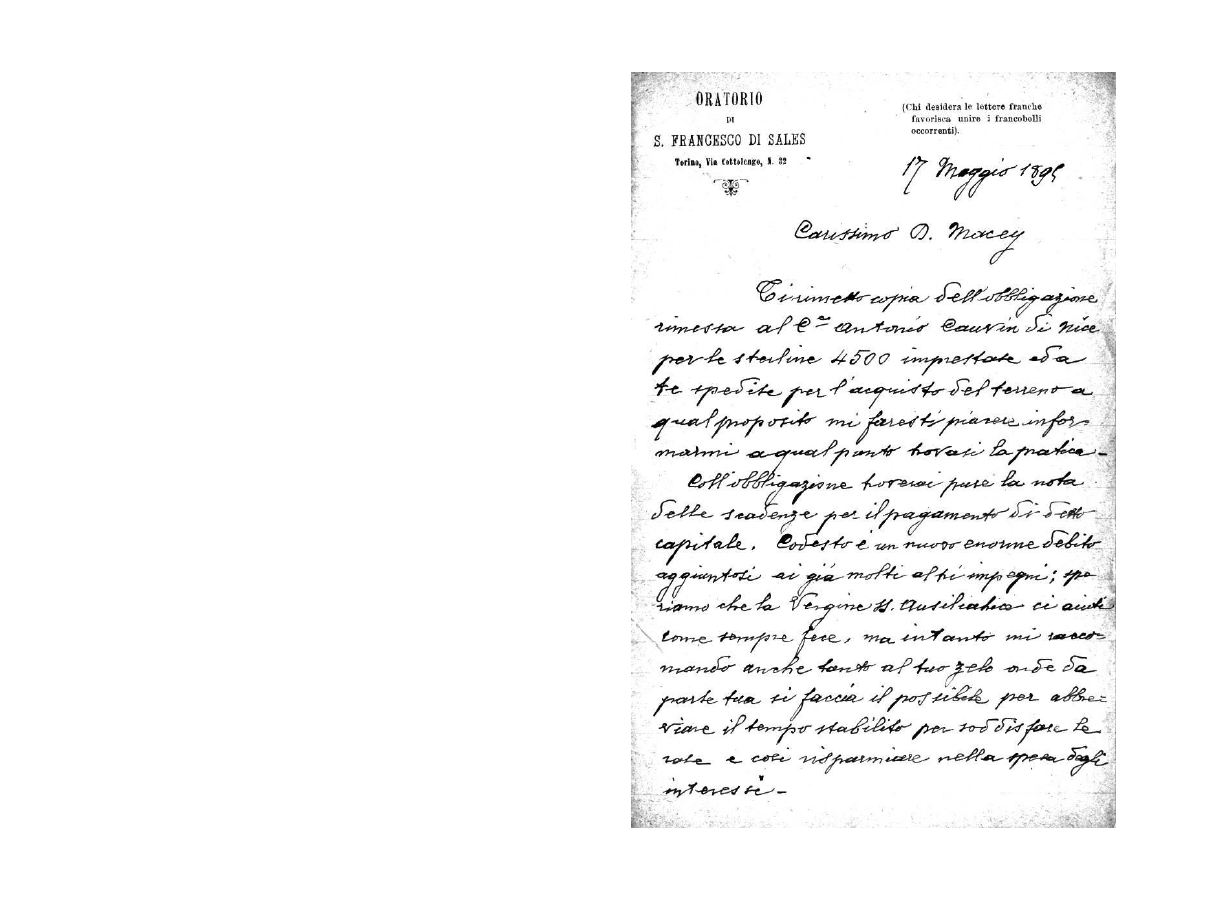 ORATORIO
DI
S. FRANCESCO DI SALES
Torino, Via Cottolengo, N. 32
(Chi desidera le lettere franche
favorisca unire i francobolli
occorrenti).
17 Maggio 1895
Carissimo D. Macey
Ti rimetto copia dell'obbligazione
rimessa al Cte Antonio Cauvin di Nice
per le sterline 4500 imprestate e da
te spedite per l'acquisto del terreno a
qual proposito mi faresti piacere infor-
marmi a qual punto trovasi la pratica -
Coll'obbligazione troverai pure la nota
delle scadenze per il pagamento di detto
capitale. Codesto è un nuovo enorme debito
aggiuntosi ai già molti altri impegni; spe
riamo che la Vergine SS. Ausiliatrice ci aiuti
come sempre fece, ma intanto mi racco=
mando anche tanto al tuo zelo onde da
parte tua si faccia il possibile per abbre=
viare il tempo stabilito per soddisfare le
rate e così risparmiare nella spesa degli
interessi -